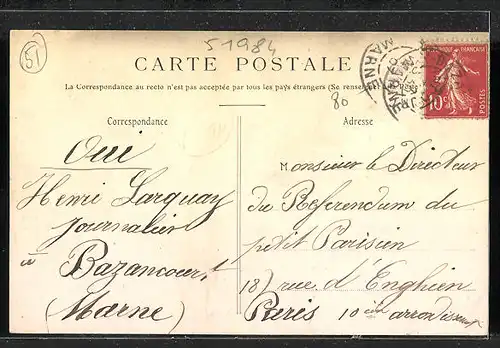 51984
51
CARTE POSTALE
La Correspondance au recto n'est pas acceptée par tous les pays étrangers (Se renseigner
80
MARNE
RÉPUBLIQUE FRANÇAISE
10c
POSTES
Correspondance
Oui
Henri Larquay
Journalier
à Bazancourt
(Marne)
Adresse
Monsieur le Directeur
du Referendum du
petit Parisien
18) rue d'Enghien
Paris 10ième arrondissemt